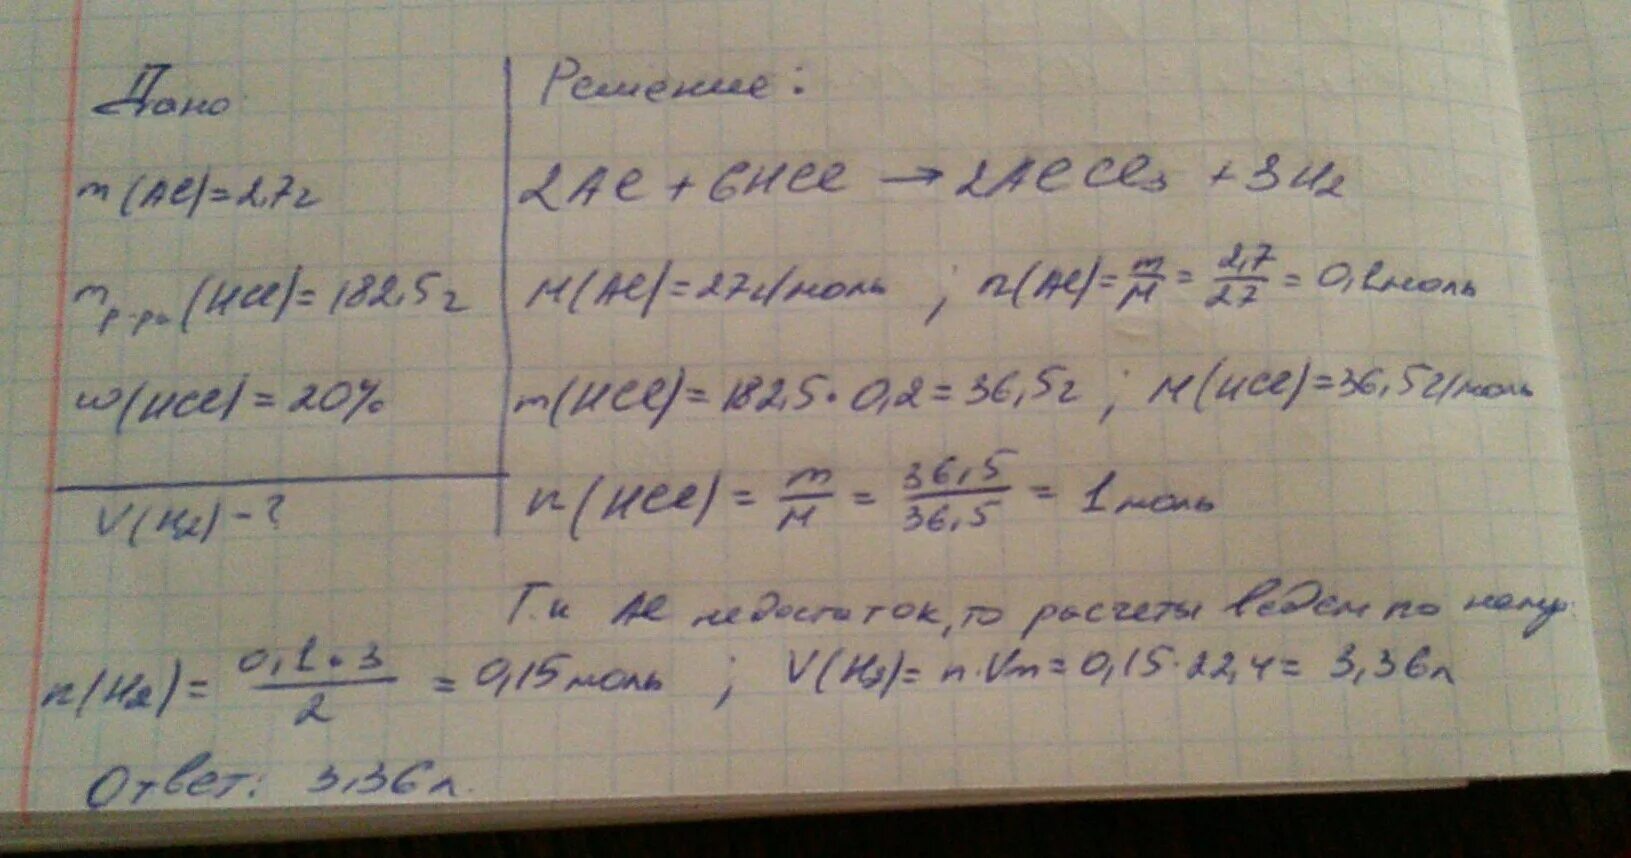 Дано
m(Al)=2,7г
mр-ра(HCl)=182,5г
w(HCl)=20%
V(H2)-?
Решение:
2Al + 6HCl → 2AlCl3 + 3H2
M(Al)=27г/моль ; n(Al)=m/M=2,7/27=0,1моль
m(HCl)=182,5·0,2=36,5г ; M(HCl)=36,5г/моль
n(HCl)=m/M=36,5/36,5=1моль
Т.к Al недостаток, то расчеты ведем по нему:
n(H2)=0,1·3/2=0,15моль ; V(H2)=n·Vm=0,15·22,4=3,36л
Ответ: 3,36л.